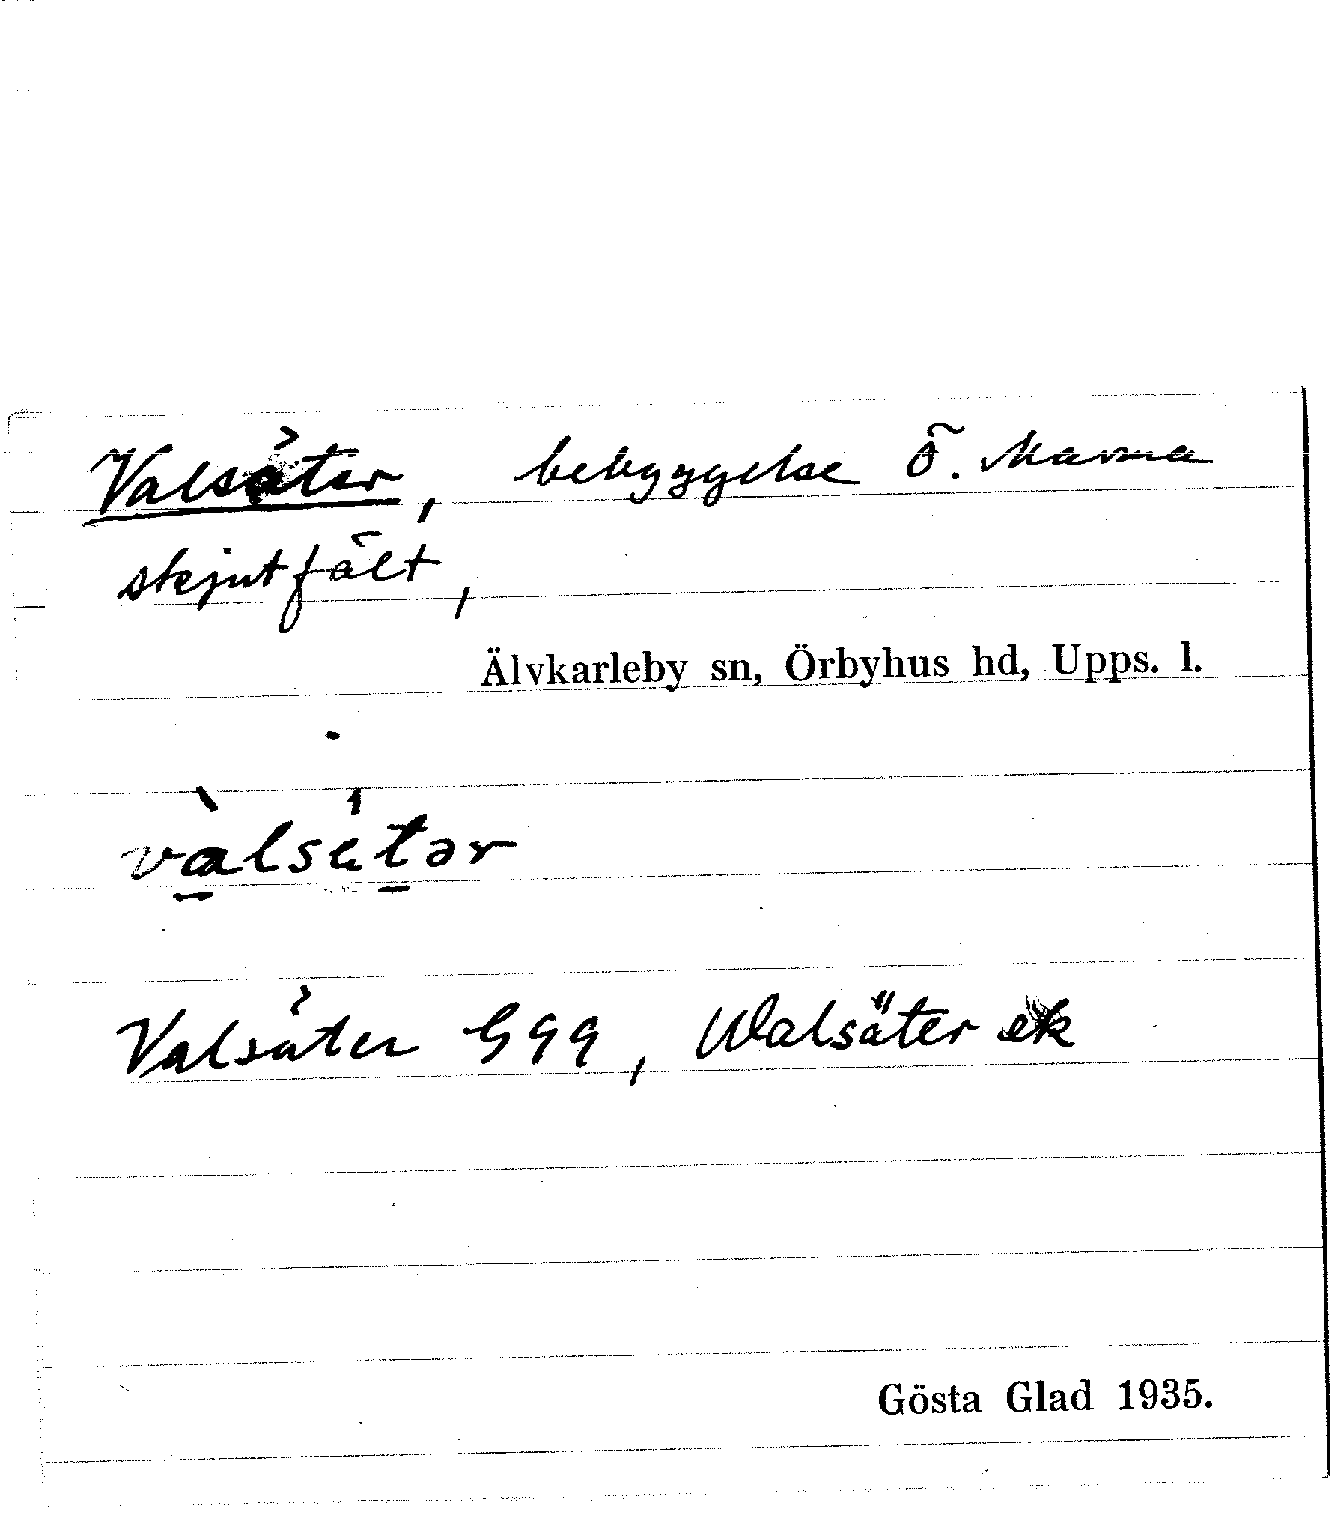 Valsäter, bebyggelse Ö. Marma
skjutfält,
Älvkarleby sn, Örbyhus hd, Upps. l.
vàlsä́tər
Valsäter Ggg, Walsäter ek
Gösta Glad 1935.